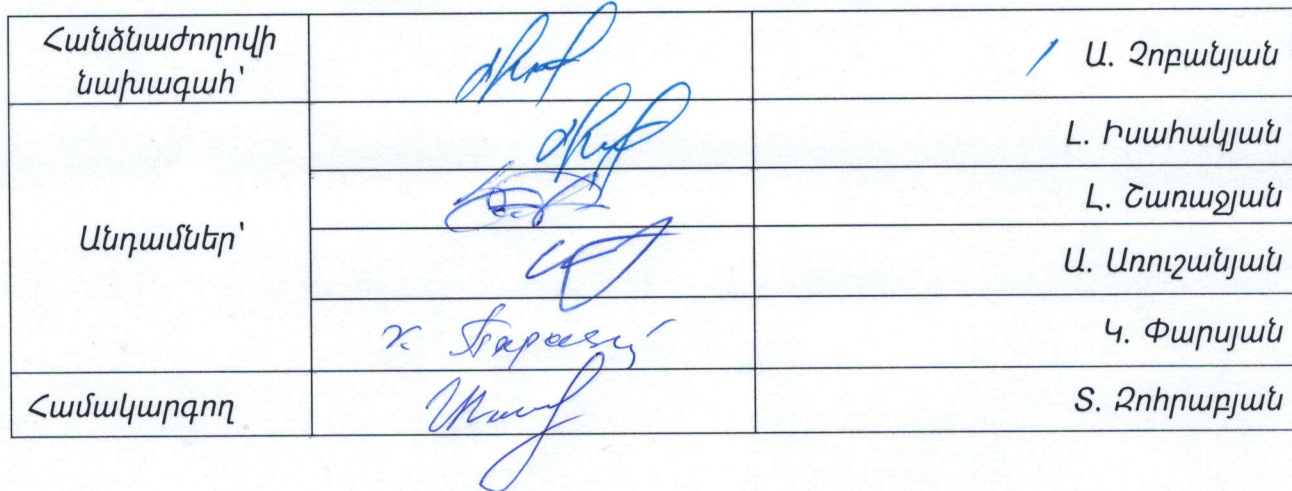 Հանձնաժողովի
նախագահ՝
Ա. Չոբանյան
Անդամներ՝
Լ. Իսահակյան
Լ. Շառաջյան
Ա. Առուշանյան
Կ. Փարսյան
Համակարգող
Տ. Զոհրաբյան